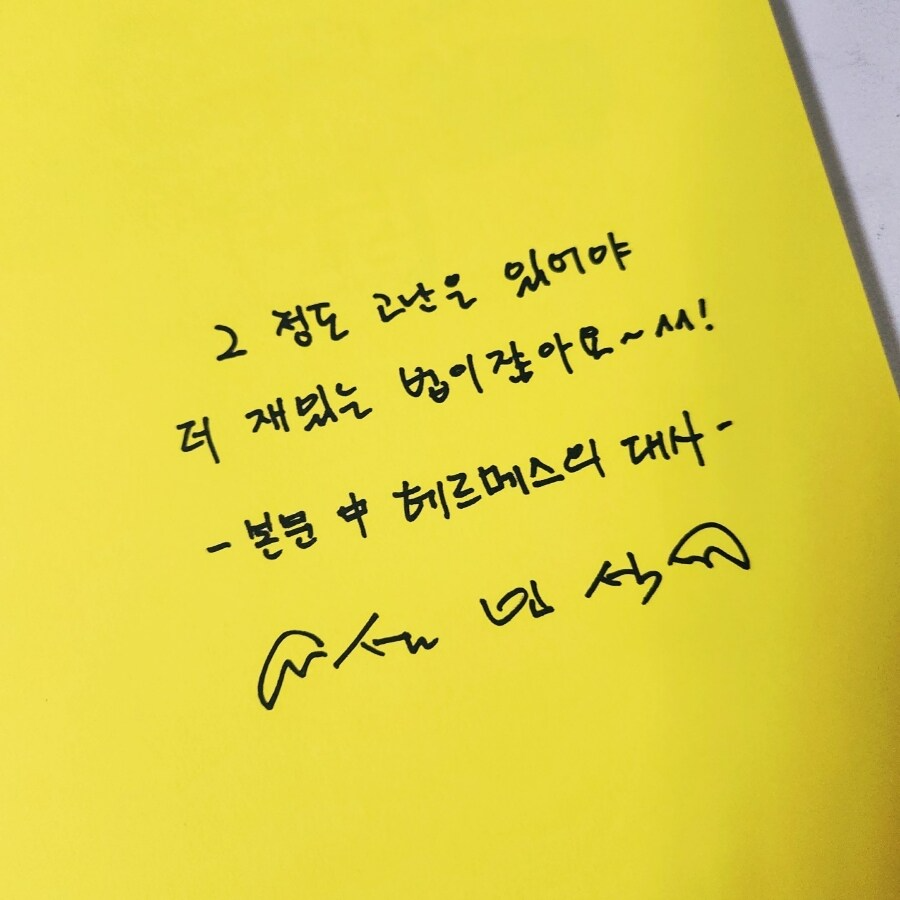 그 정도 고난은 있어야
더 재밌는 법이잖아요~^^!
- 본문 中 헤르메스의 대사 -
설 민 석